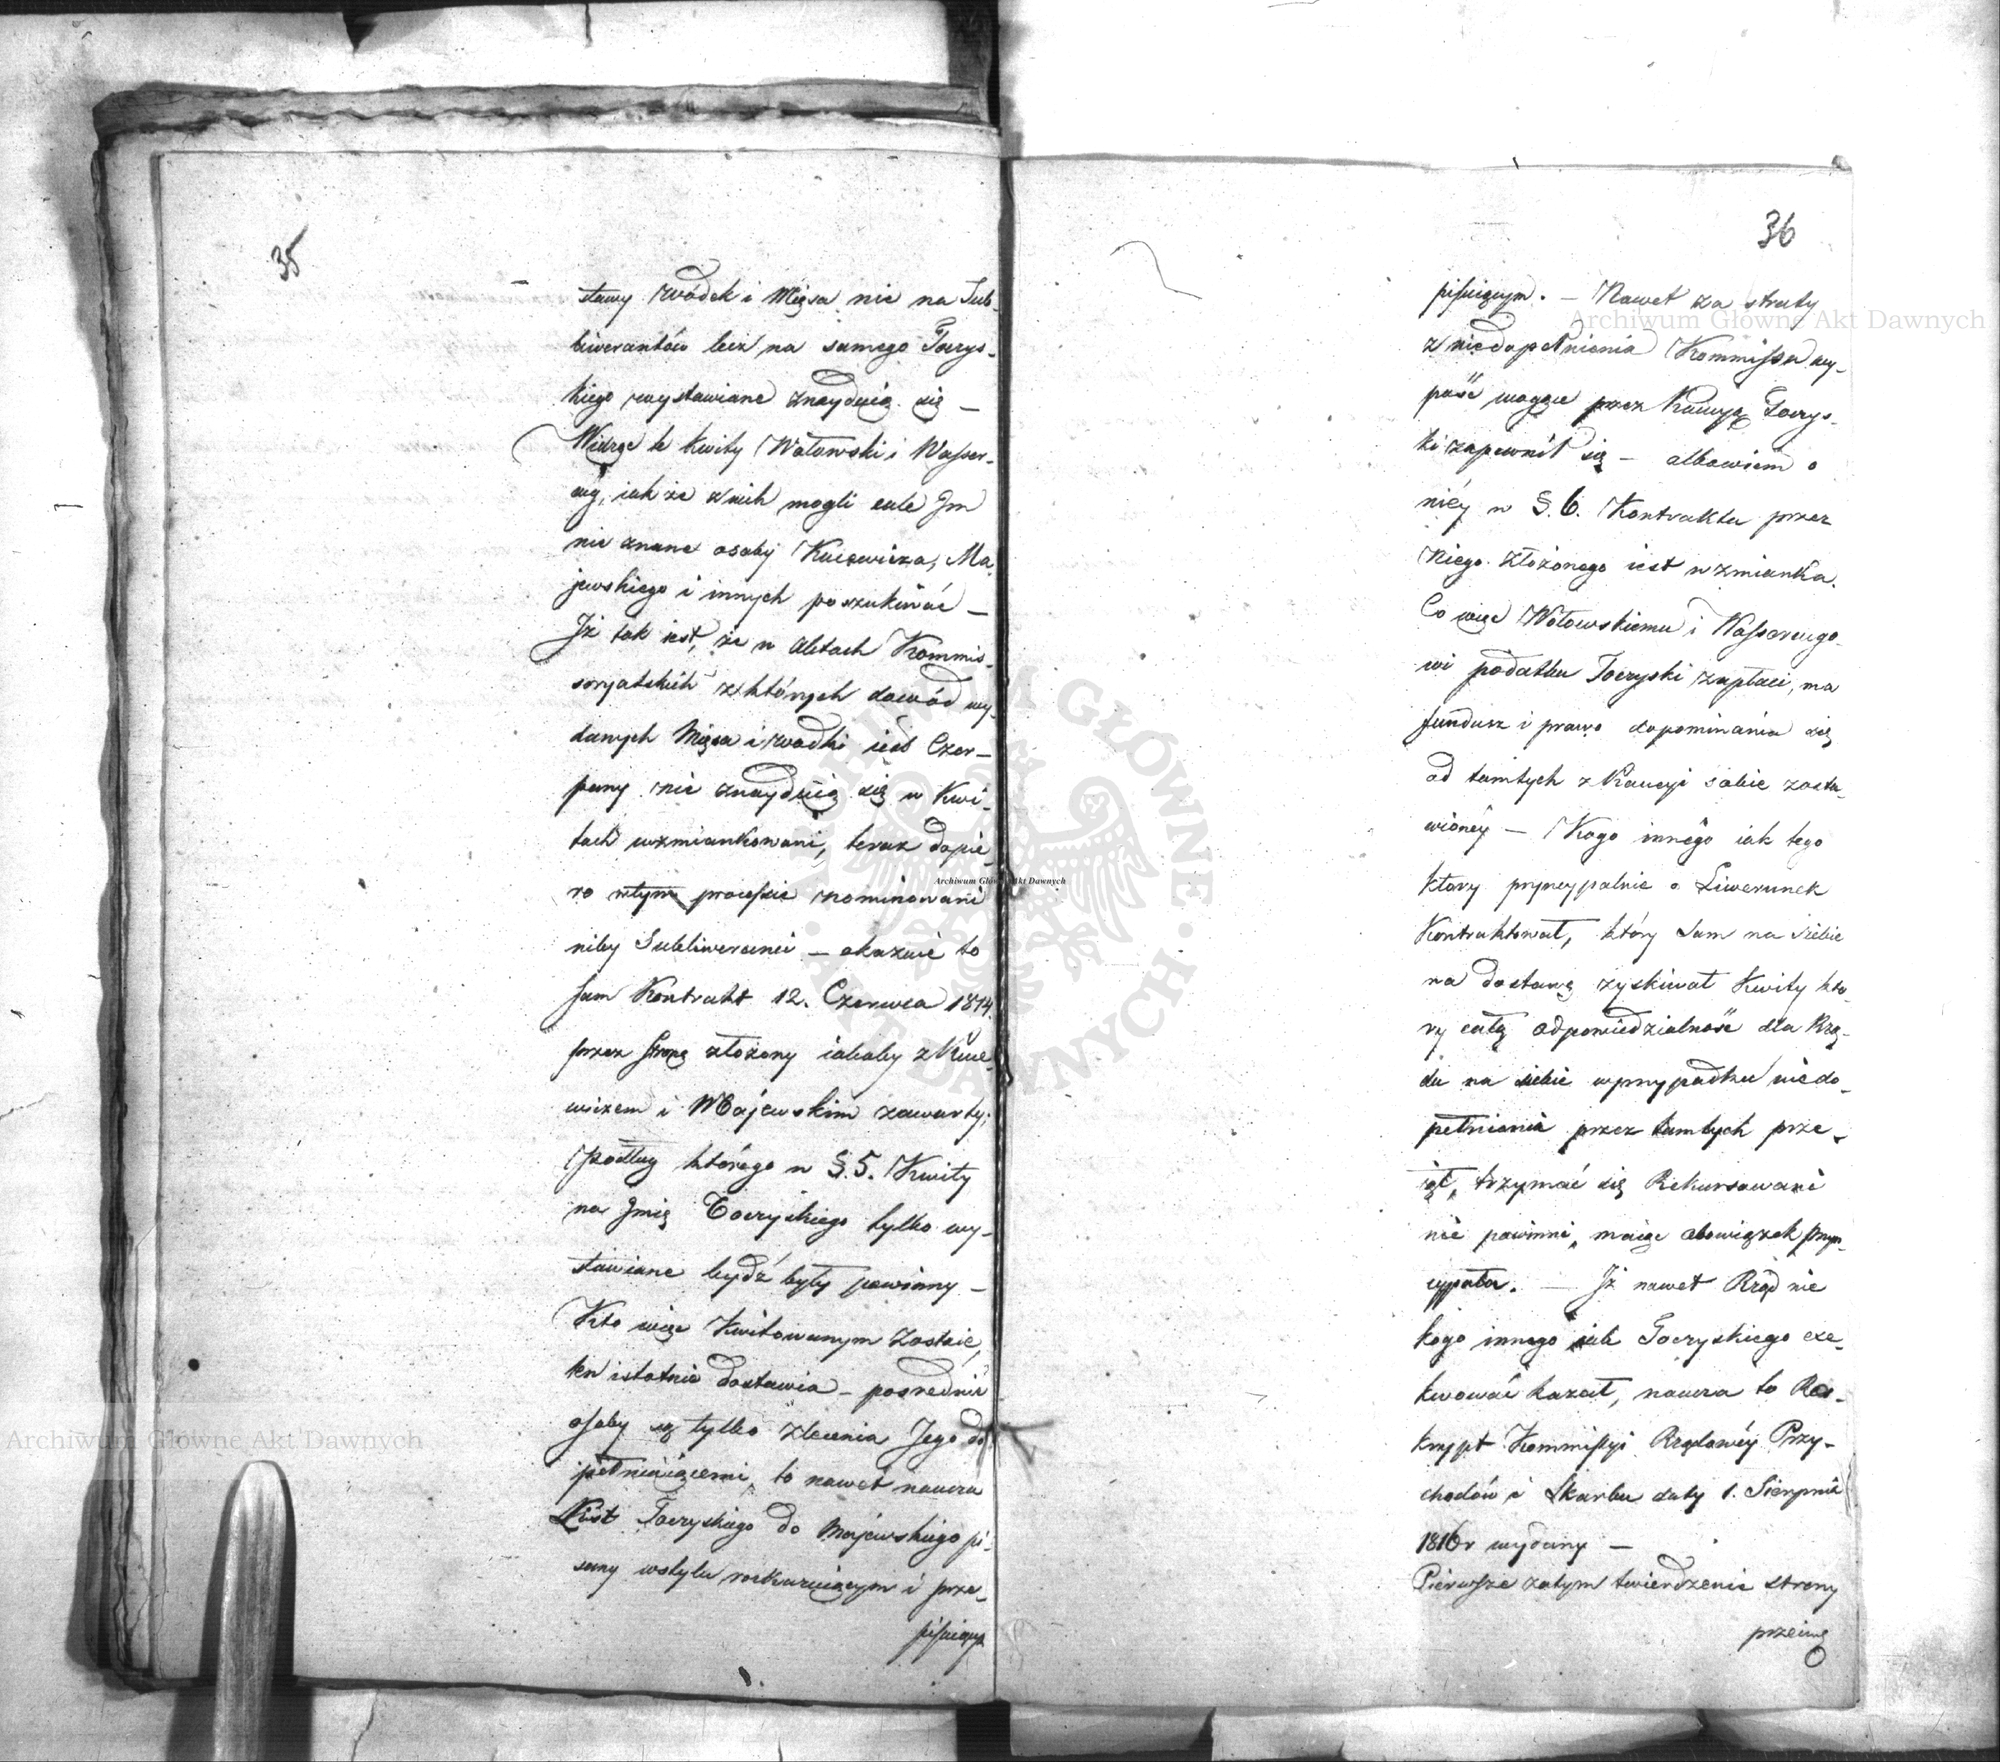 35
stawy wódek i Mięsa nie na Sub-
liwerantów lecz na samego Toczys-
kiego wystawiane znayduią się —
Widząc te kwity Wołowski i Wasser-
cug, iakże z nich mogli cale Jm
nie znane osoby Kucewicza, Ma-
jewskiego i innych poszukiwać —
Jż tak iest, że w Aktach Kommis-
soryatskich z których dowód wy-
danych Mięsa i wodki iest Czer-
pany nie znayduią się w Kwi-
tach wzmiankowani, teraz dopie-
ro w tym procesie nominowani
niby Subliweranci — okazuie to
sam Kontrakt 12. Czerwca 1814.
przez Stronę złożony iakoby z Kuce-
wiczem i Majewskim zawarty,
podług którego w §. 5. Kwity
na Jmię Toczyskiego tylko wy-
stawiane bydź były powinny —
Kto więc Kwitowanym zostaie,
ten istotnie dostawia — posrednie
osoby są tylko zlecenia Jego do
pełniaiącemi, to nawet naucza
List Toczyskiego do Majewskiego pi-
sany w stylu roskazuiącym i prze-
pisuiącym
36
pisuiącym. — Nawet za straty
z niedopełnienia Kommissu wy-
paść mogące przez Kaucyą Toczys-
ki zapewnił się — albowiem o
niéy w §. 6. Kontraktu przez
Niego złożonego iest wzmianka.
Co więc Wołowskiemu i Wassercugo-
wi podatku Toczyski zapłaci, ma
fundusz i prawo dopominania się
od tamtych z Kaucyi sobie zosta-
wionéy — Kogo innégo iak tego
ktory pryncypalnie o Liwerunek
Kontraktował, który sam na siebie
na dostawę zyskiwał Kwity kto-
ry całą odpowiedzialność dla Rzą-
du na siebie w przypadku niedo-
pełnienia przez tamtych prze-
iął, trzymać się Rekursowani
nie powinni, maiąc obowiązek pryn-
cypała. — Jż nawet Rząd nie
kogo innego iak Toczyskiego exe-
kwować kazał, naucza to Res-
krypt Kommissyi Rządowéy Przy-
chodów i Skarbu daty 1. Sierpnia
1816r wydany —
Pierwsze zatym twierdzenie strony
przeiwą
Archiwum Główne Akt Dawnych
Archiwum Główne Akt Dawnych
Archiwum Główne Akt Dawnych
ARCHIWUM GŁÓWNE AKT DAWNYCH